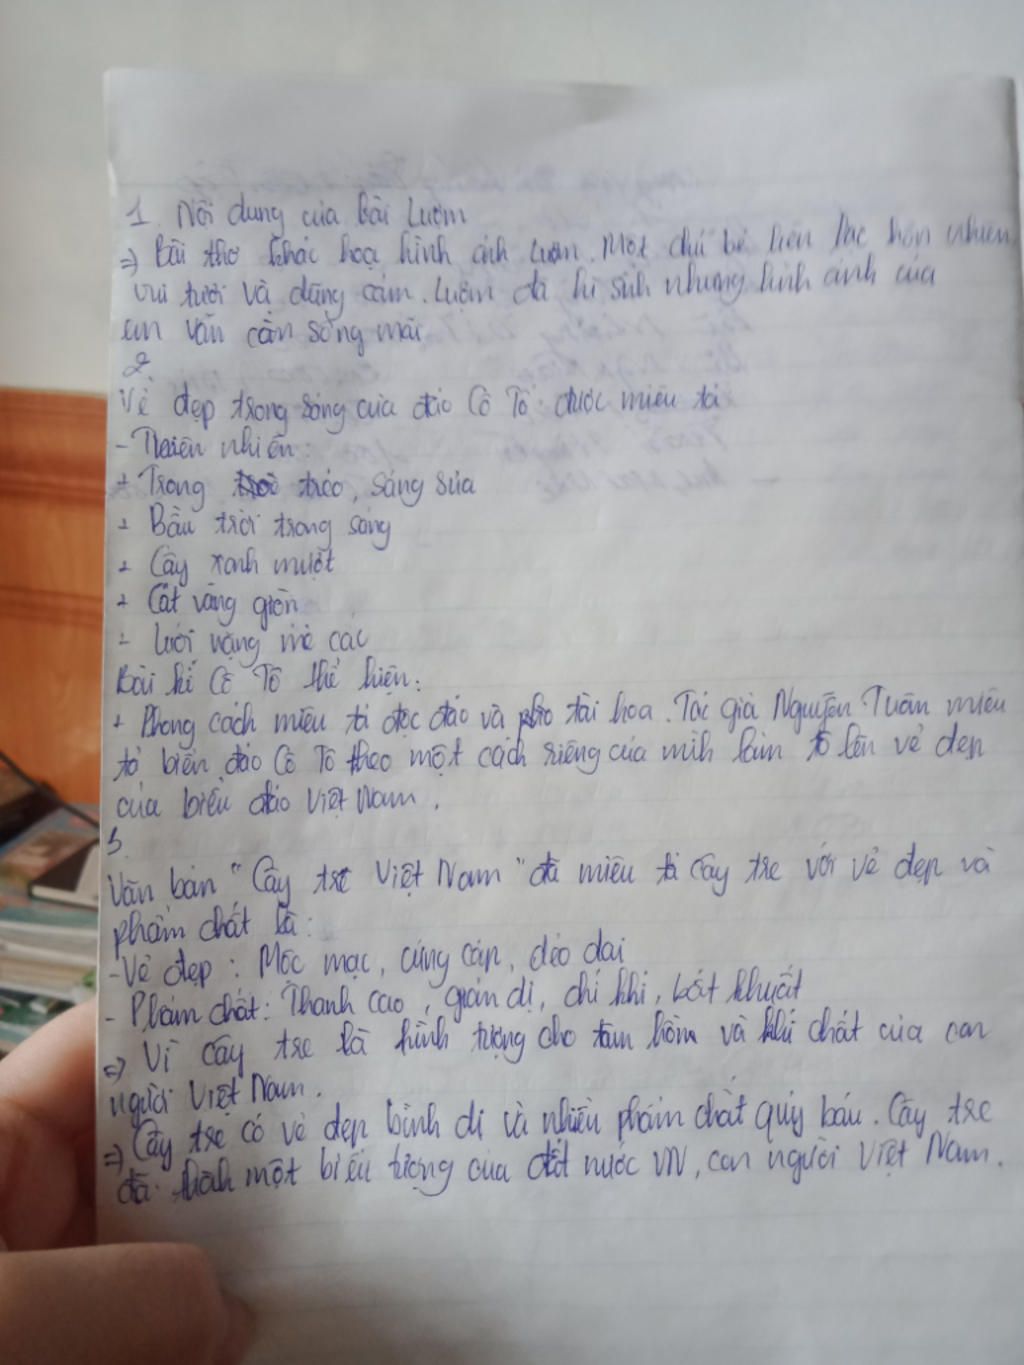 1. Nội dung của bài Lượm
=> Bài thơ khắc hoạ hình ảnh Lượm. Một chú bé liên lạc hồn nhiên
vui tươi và dũng cảm. Lượm đã hi sinh nhưng hình ảnh của
em vẫn còn sống mãi
2.
Vẻ đẹp trong sáng của đảo Cô Tô được miêu tả
- Thiên nhiên:
+ Trong trẻo, sáng sủa
+ Bầu trời trong sáng
+ Cây xanh mượt
+ Cát vàng giòn
+ Lưới nặng mẻ các
Bài kí Cô Tô thể hiện:
+ Phong cách miêu tả độc đáo và tài hoa. Tác giả Nguyễn Tuân miêu
tả biển đảo Cô Tô theo một cách riêng của mình làm tô lên vẻ đẹp
của biển đảo Việt Nam.
3.
Văn bản "Cây tre Việt Nam" đã miêu tả cây tre với vẻ đẹp và
phẩm chất là:
- Vẻ đẹp: Mộc mạc, cứng cáp, dẻo dai
- Phẩm chất: Thanh cao, giản dị, chí khí, bất khuất
=> Vì cây tre là hình tượng cho tâm hồn và khí chất của con
người Việt Nam.
=> Cây tre có vẻ đẹp bình dị và nhiều phẩm chất quý báu. Cây tre
đã thành một biểu tượng của đất nước VN, con người Việt Nam.